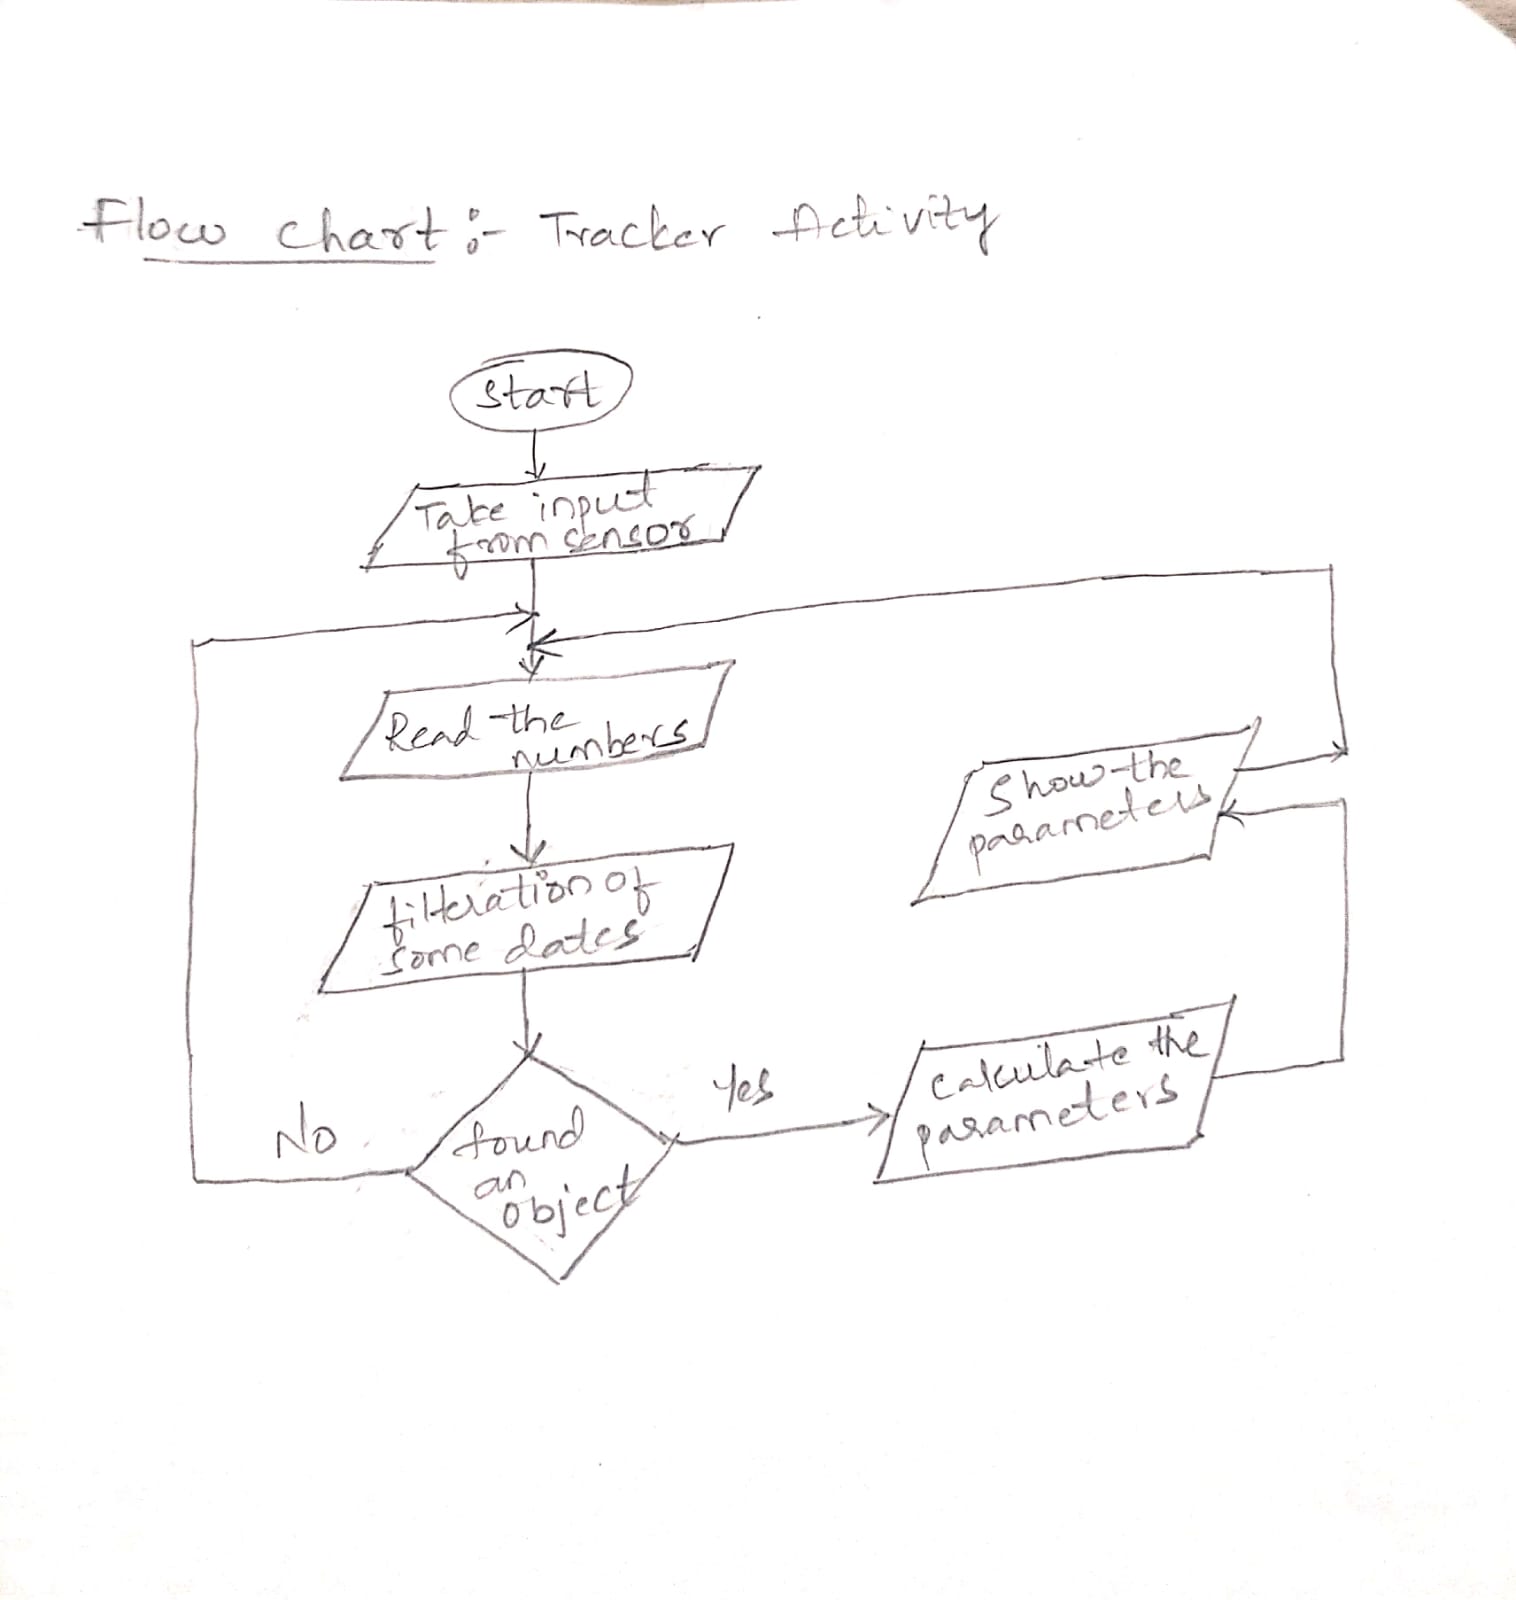 Flow chart :- Tracker Activity
Start
Take input
from sensor
Read the
numbers
filteration of
some dates
found
an
object
No
Yes
Calculate the
parameters
Show the
parameters